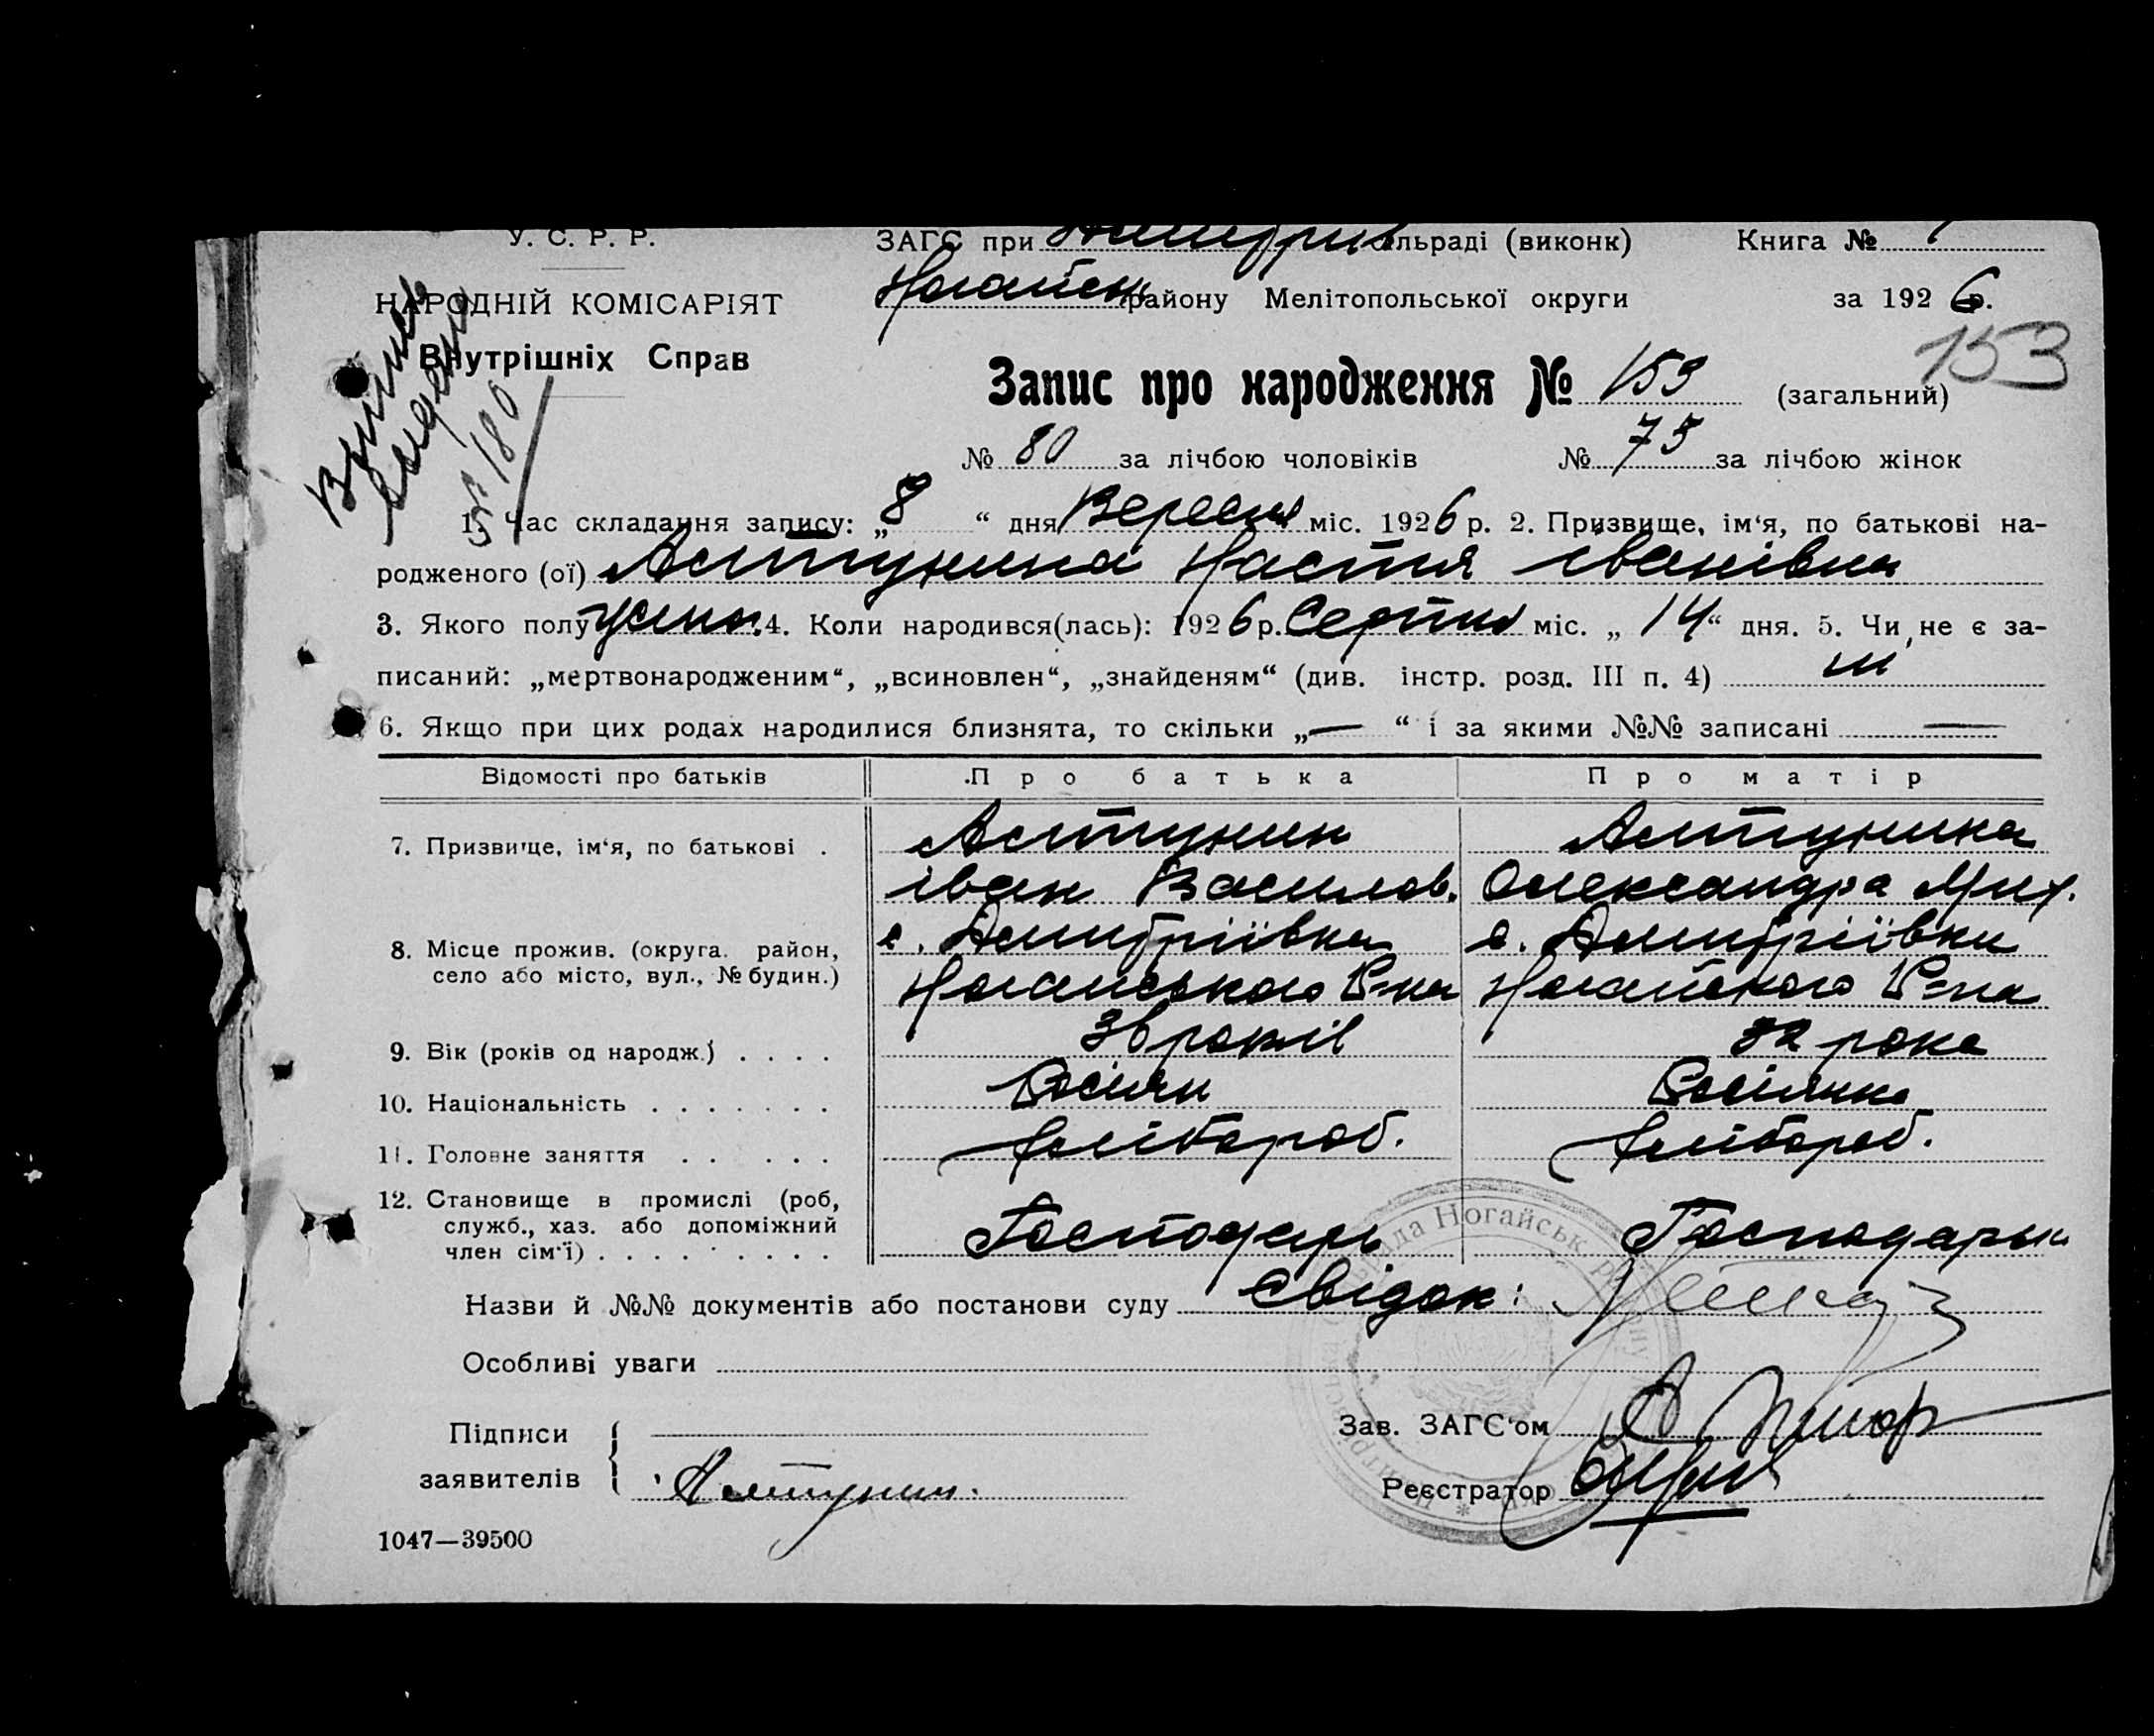 У. С. Р. Р.
НАРОДНІЙ КОМІСАРІЯТ
Внутрішніх Справ
Випись видано
№ 180
ЗАГС при Дмитрів сільраді (виконк) Книга №
Ногайськ району Мелітопольської округи за 1926 р.
153
Запис про народження № 153 (загальний)
№ 80 за лічбою чоловіків № 73 за лічбою жінок
1. Час складання запису: „8“ дня Вересня міс. 1926 р. 2. Призвище, ім‘я, по батькові на-
родженого (ої) Астунина Настя Іванівна
3. Якого полу жіноч. 4. Коли народився(лась): 1926 р. Серпня міс. „14“ дня. 5. Чи не є за-
писаний: „мертвонародженим“, „всиновлен“, „знайденям“ (див. інстр. розд. III п. 4) ні
6. Якщо при цих родах народилися близнята, то скільки „—“ і за якими №№ записані —
Відомості про батьків Про батька Про матір
7. Призвище, ім‘я, по батькові . Астунин Астунина
Іван Василов. Олександра Мих.
8. Місце прожив. (округа. район, село або місто, вул., № будин.) с. Дмитріївка с. Дмитріївки
Ногайського Р-на Ногайского Р-на
9. Вік (років од народж.) . . . . 36 років 32 рока
10. Національність . . . . . . . Росіян Росіянка
11. Головне заняття . . . . . Хлібороб. Хлібороб.
12. Становище в промислі (роб,
служб., хаз. або допоміжний
член сім‘ї) . . . . . . . . . Господарь Господарьи
Назви й №№ документів або постанови суду Свідок:
Особливі уваги
Підписи
заявителів Астунин.
Зав. ЗАГС‘ом
Реєстратор
1047—39500